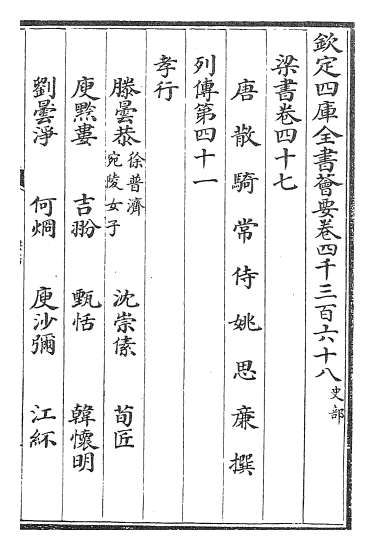 欽定四庫全書薈要卷四千三百六十八史部
梁書卷四十七
唐散騎常侍姚思廉撰
列傳第四十一
孝行
滕曇恭徐普濟宛陵女子 沈崇傃 荀匠
庾黔婁 吉翂 甄恬 韓懷明
劉曇淨 何烱 庾沙彌 江紑